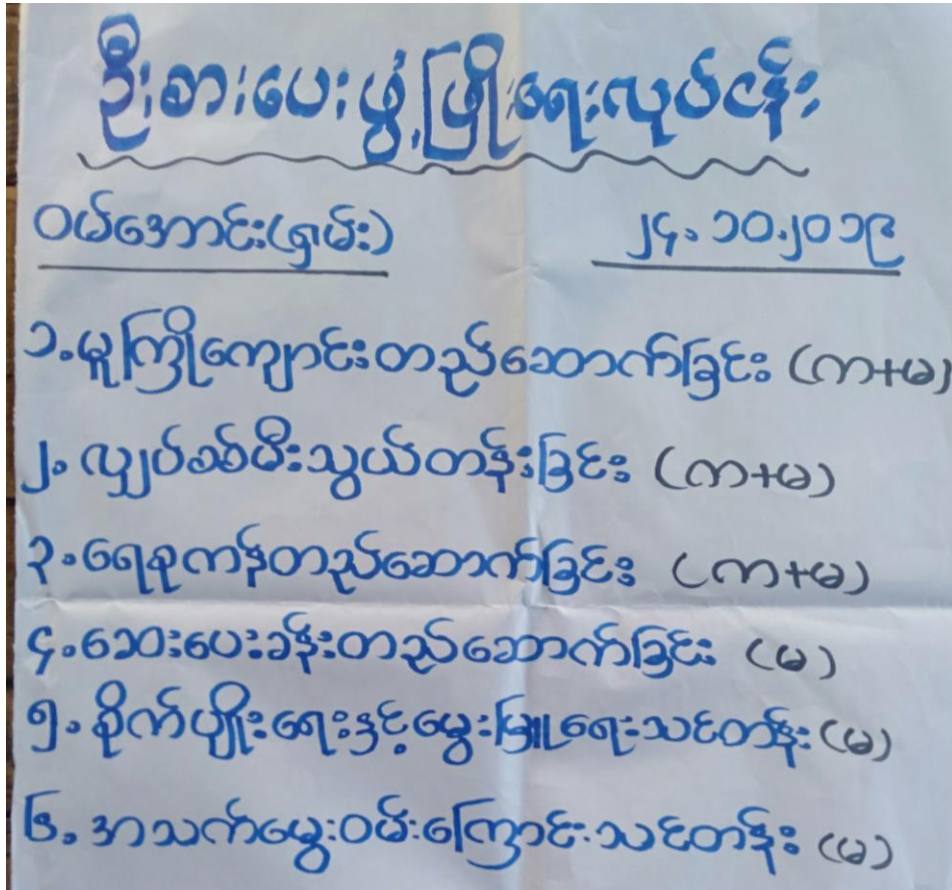 ဦးစားပေးဖွံ့ဖြိုးရေးလုပ်ငန်း
ဝမ်အောင်း(ရှမ်း) ၂၄.၁၀.၂၀၁၉
၁.မူကြိုကျောင်းတည်ဆောက်ခြင်း (က+မ)
၂. လျှပ်စစ်မီးသွယ်တန်းခြင်း (က+မ)
၃.ရေစုကန်တည်ဆောက်ခြင်း (က+မ)
၄.ဆေးပေးခန်းတည်ဆောက်ခြင်း (မ)
၅. စိုက်ပျိုးရေးနှင့်မွေးမြူရေးသင်တန်း (မ)
၆. အသက်မွေးဝမ်းကြောင်းသင်တန်း (မ)